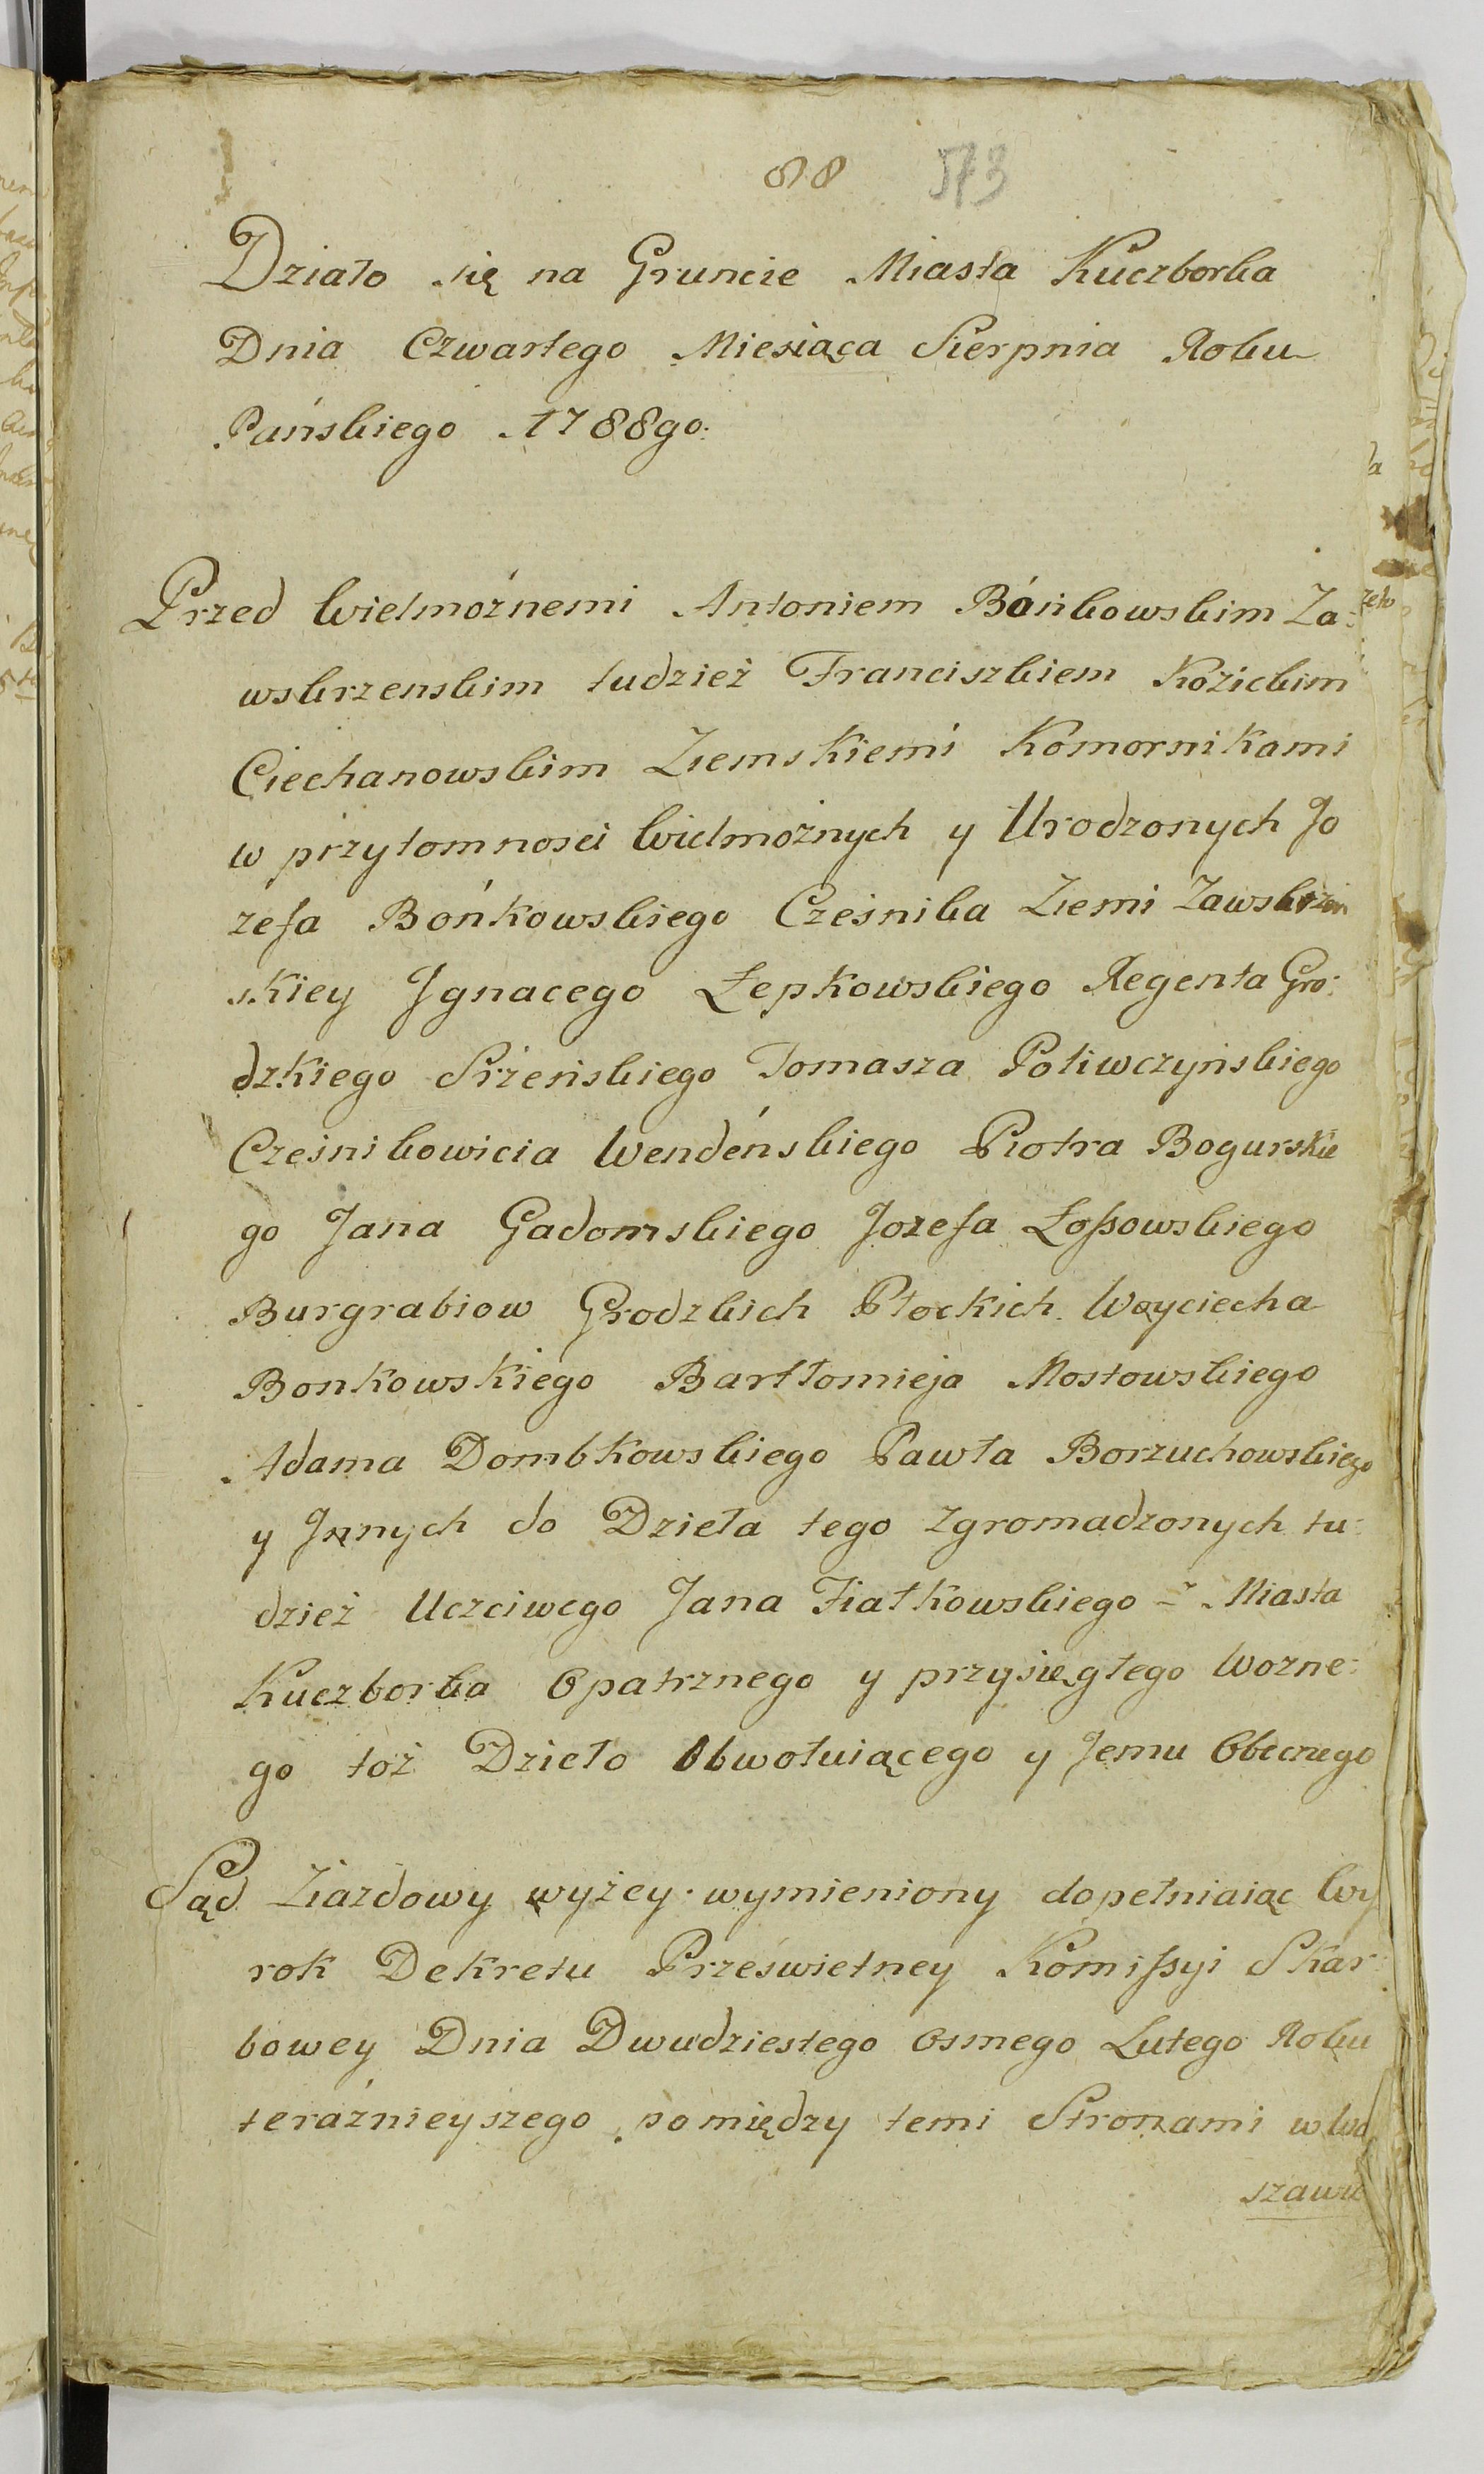 88 573
Działo się na Gruncie Miasta Kuczborka
Dnia Czwartego Miesiąca Sierpnia Roku
Pańskiego 1788go:
Przed Wielmożnemi Antoniem Bońkowskim Za:
wskrzenskim tudzież Franciszkiem Kozickim
Ciechanowskim Ziemskiemi Komornikami
w przytomności Wielmożnych y Urodzonych Jo
zefa Bońkowskiego Cześnika Ziemi Zawskrzin
skiey Jgnacego Łepkowskiego Regenta Gro:
dzkiego Srzeńskiego Tomasza Poliwczyńskiego
Cześnikowicia Wendeńskiego Piotra Bogurskie
go Jana Gadomskiego Jozefa Łossowskiego
Burgrabiow Grodzkich Płockich Woyciecha
Bonkowskiego Bartłomieja Mostowskiego
Adama Dombkowskiego Pawła Borzuchowskiego
y Jnnych do Dzieła tego zgromadzonych tu:
dzież Uczciwego Jana Fiałkowskiego z Miasta
Kuczborka Opatrznego y przysięgłego Wozne:
go toż Dzieło Obwołuiącego y Jemu Obecnego
Sąd Ziazdowy wyżey wymieniony dopełniaiąc Wy
rok Dekretu Prześwietney Komissyi Skar:
bowey Dnia Dwudziestego Osmego Lutego Roku
teraźnieyszego pomiędzy temi Stronami w Wa
szawie